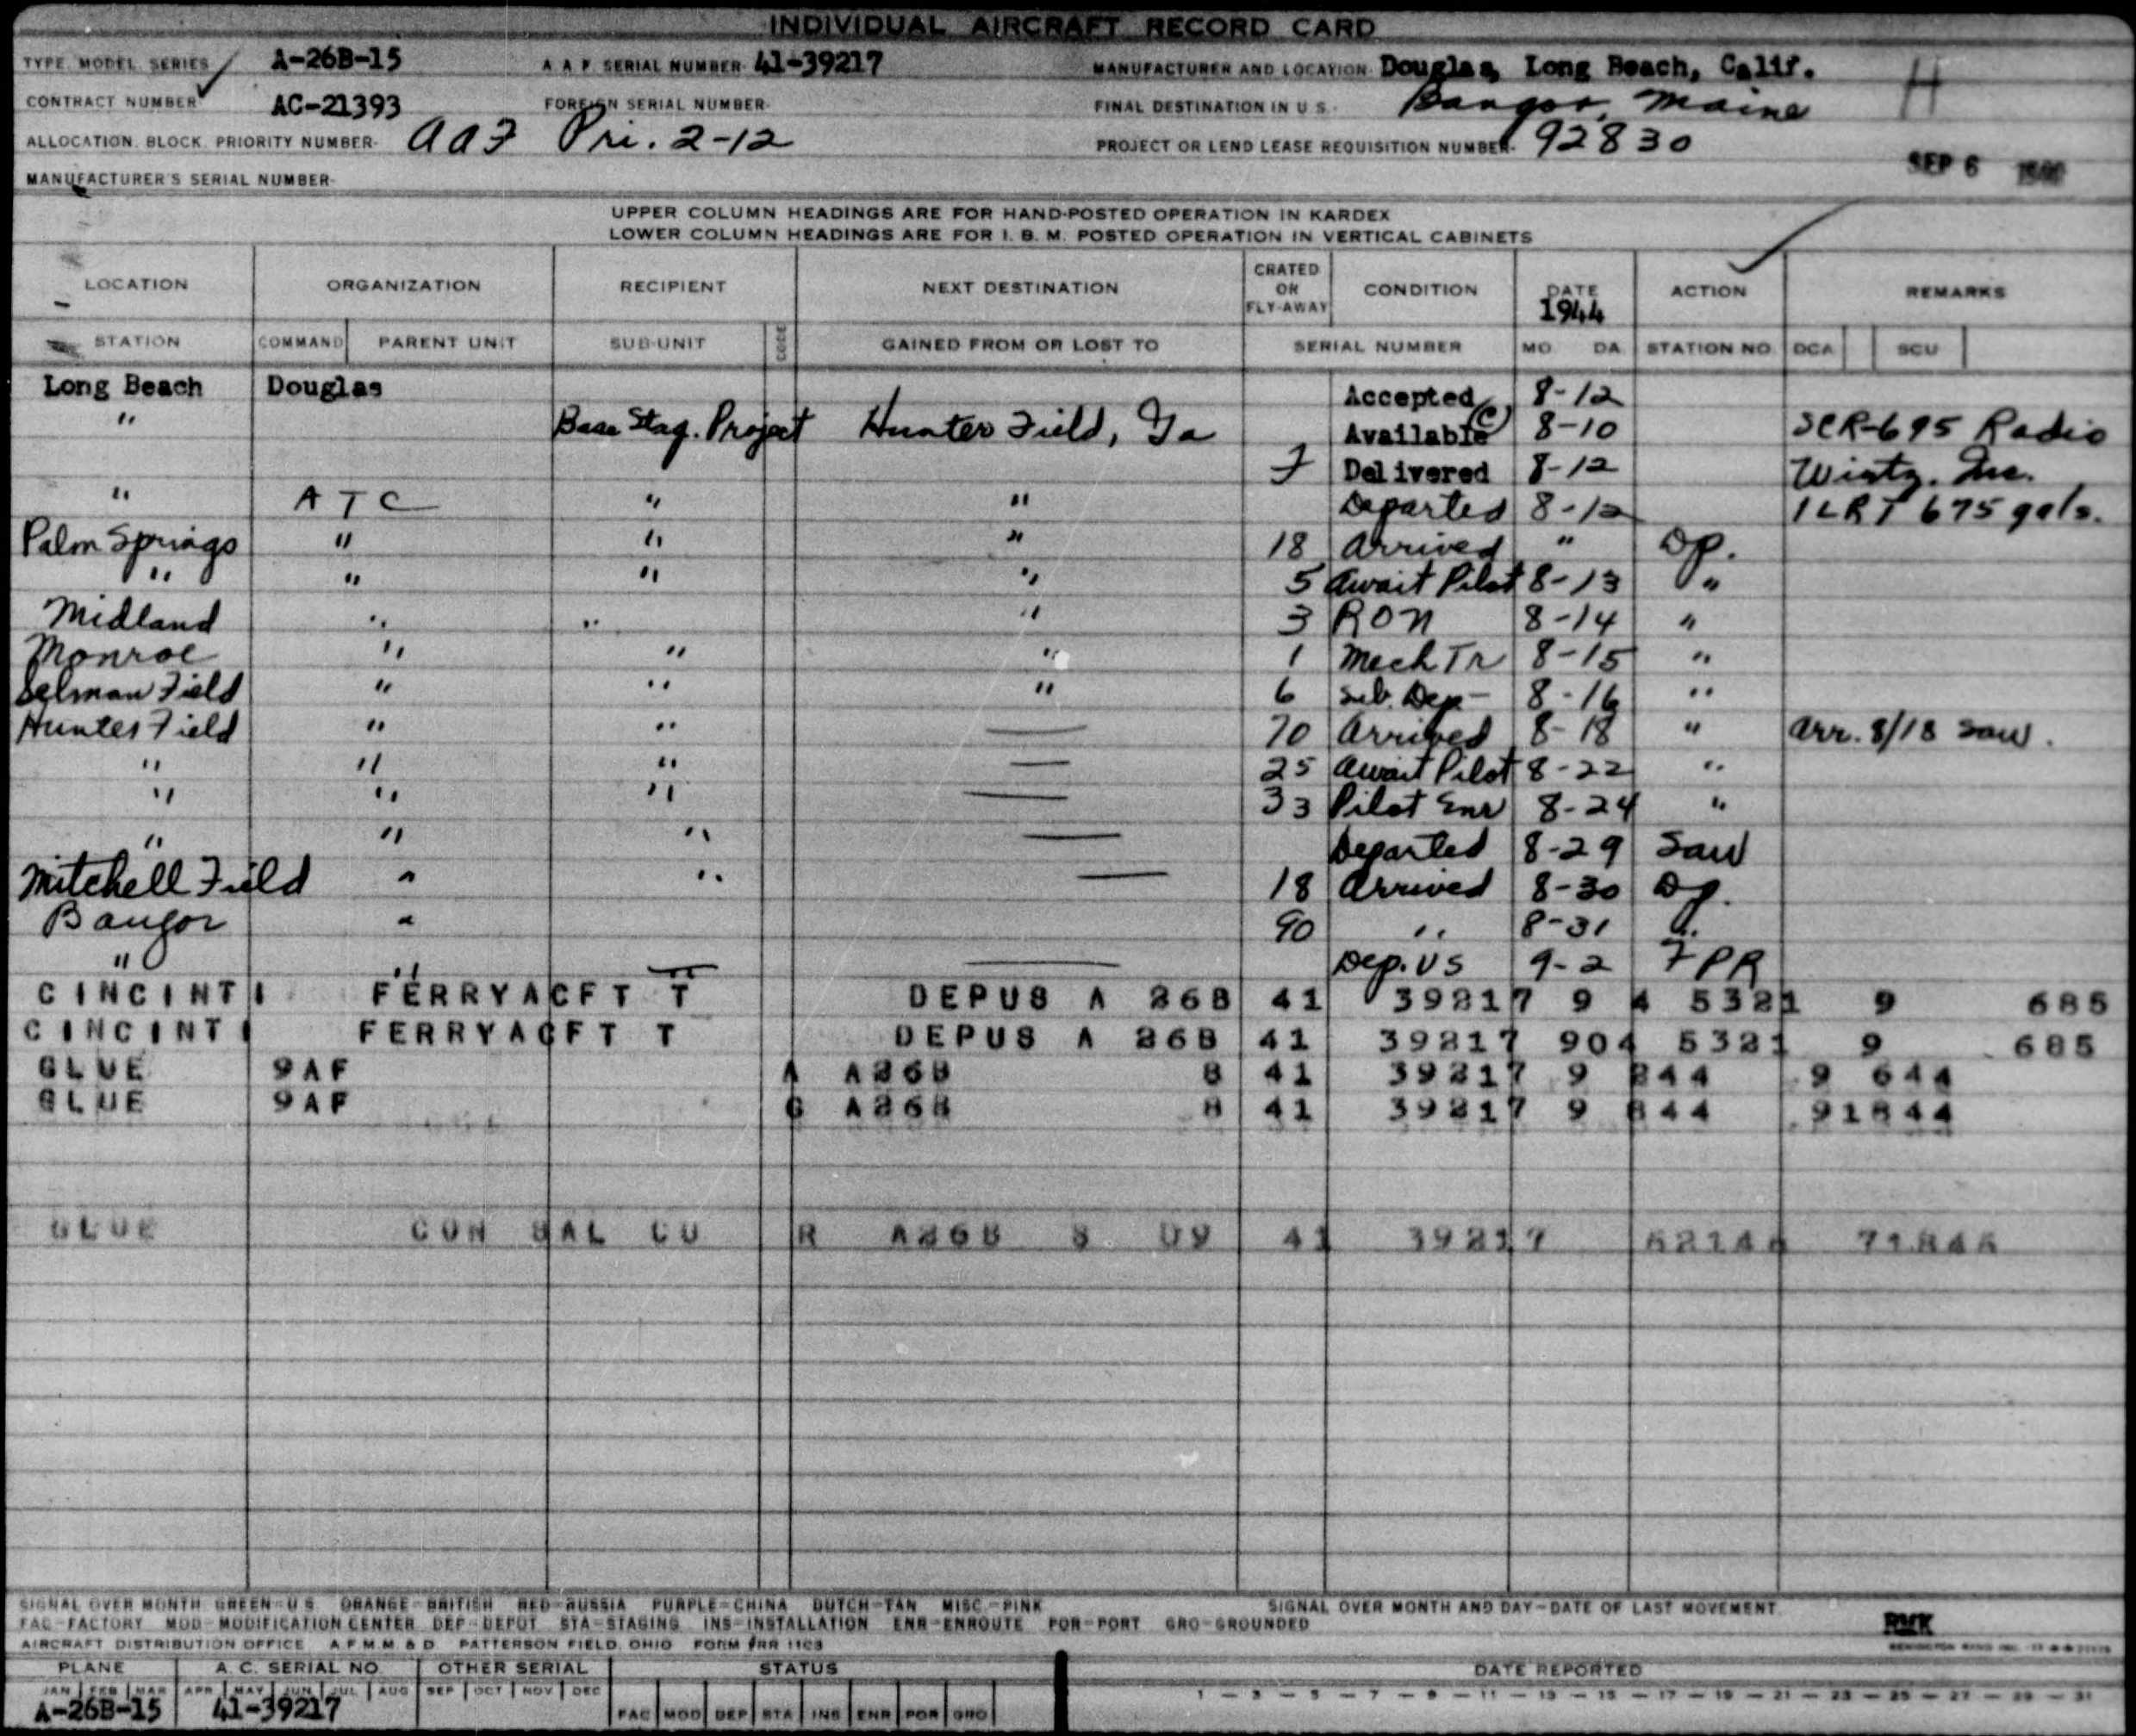 INDIVIDUAL AIRCRAFT RECORD CARD
TYPE MODEL SERIES A-26B-15 A A F SERIAL NUMBER- 41-39217 MANUFACTURER AND LOCATION- Douglas, Long Beach, Calif. H
CONTRACT NUMBER AC-21393 FOREIGN SERIAL NUMBER- FINAL DESTINATION IN U S- Bangor, Maine
ALLOCATION BLOCK PRIORITY NUMBER- AAF Pri. 2-12 PROJECT OR LEND LEASE REQUISITION NUMBER- 92830
MANUFACTURER'S SERIAL NUMBER- SEP 6
UPPER COLUMN HEADINGS ARE FOR HAND-POSTED OPERATION IN KARDEX
LOWER COLUMN HEADINGS ARE FOR I. B. M. POSTED OPERATION IN VERTICAL CABINETS
LOCATION ORGANIZATION RECIPIENT NEXT DESTINATION CRATED OR FLY-AWAY CONDITION DATE 1944 ACTION REMARKS
STATION COMMAND PARENT UNIT SUB-UNIT CODE GAINED FROM OR LOST TO SERIAL NUMBER MO DA STATION NO DCA SCU
Long Beach Douglas Accepted 8-12
" Base Stag. Project Hunter Field, Ga Available (C) 8-10 SCR-695 Radio
F Delivered 8-12 Wintz. Inc.
" ATC " " Departed 8-12 1 LRT 675 gals.
Palm Springs " " " 18 Arrived " Dp.
" " " " 5 Await Pilot 8-13 "
Midland " " " 3 RON 8-14 "
Monroe " " " 1 Mech Tr 8-15 "
Selman Field " " " 6 Sub. Dep- 8-16 "
Hunter Field " " — 70 Arrived 8-18 " Arr. 8/18 Saw.
" " " — 25 Await Pilot 8-22 "
" " " — 33 Pilot Enr 8-24 "
" " " — Departed 8-29 Saw
Mitchell Field " " — 18 Arrived 8-30 Dp.
Bangor " 90 " 8-31 "
" " " — Dep. US 9-2 FPR
CINCINTI FERRYACFT T DEPUS A 26B 41 39217 9 4 5321 9 685
CINCINTI FERRYACFT T DEPUS A 26B 41 39217 904 5321 9 685
GLUE 9AF A A26B B 41 39217 9 244 9 644
GLUE 9AF G A26B B 41 39217 9 844 91844
GLUE CON SAL CO R A26B 41 39217
SIGNAL OVER MONTH GREEN=U S ORANGE=BRITISH RED=RUSSIA PURPLE=CHINA DUTCH=TAN MISC=PINK SIGNAL OVER MONTH AND DAY=DATE OF LAST MOVEMENT
FAC=FACTORY MOD=MODIFICATION CENTER DEP=DEPOT STA=STAGING INS=INSTALLATION ENR=ENROUTE POR=PORT GRO=GROUNDED
AIRCRAFT DISTRIBUTION OFFICE A.F.M.M & D. PATTERSON FIELD, OHIO FORM
PLANE A. C. SERIAL NO OTHER SERIAL STATUS DATE REPORTED
JAN FEB MAR APR MAY JUN JUL AUG SEP OCT NOV DEC 1 — 3 — 5 — 7 — 9 — 11 — 13 — 15 — 17 — 19 — 21 — 23 — 25 — 27 — 29 — 31
A-26B-15 41-39217 FAC MOD DEP STA INS ENR POR GRO